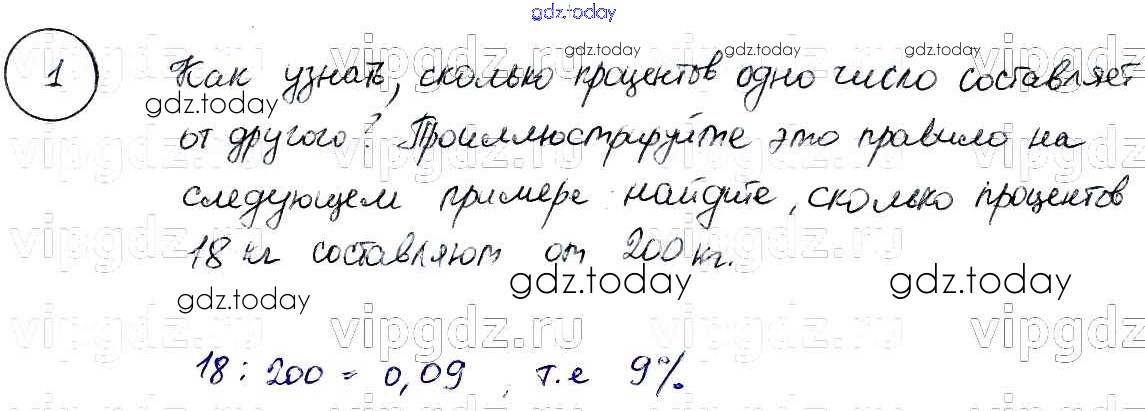 gdz.today
vipgdz.ru vipgdz.ru vipgdz.ru vipgdz.ru
gdz.today gdz.today gdz.today
1 Как узнать, сколько процентов одно число составляет
gdz.today
от другого? Проиллюстрируйте это правило на
vipgdz.ru vipgdz.ru vipgdz.ru vipgdz.ru
следующем примере найдите, сколько процентов
18 кг составляют от 200 кг.
vipgdz.ru vipgdz.ru vipgdz.ru vipgdz.ru
gdz.today gdz.today gdz.today
vipgdz.ru vipgdz.ru vipgdz.ru vipgdz.ru
18 : 200 = 0,09, т.е 9%